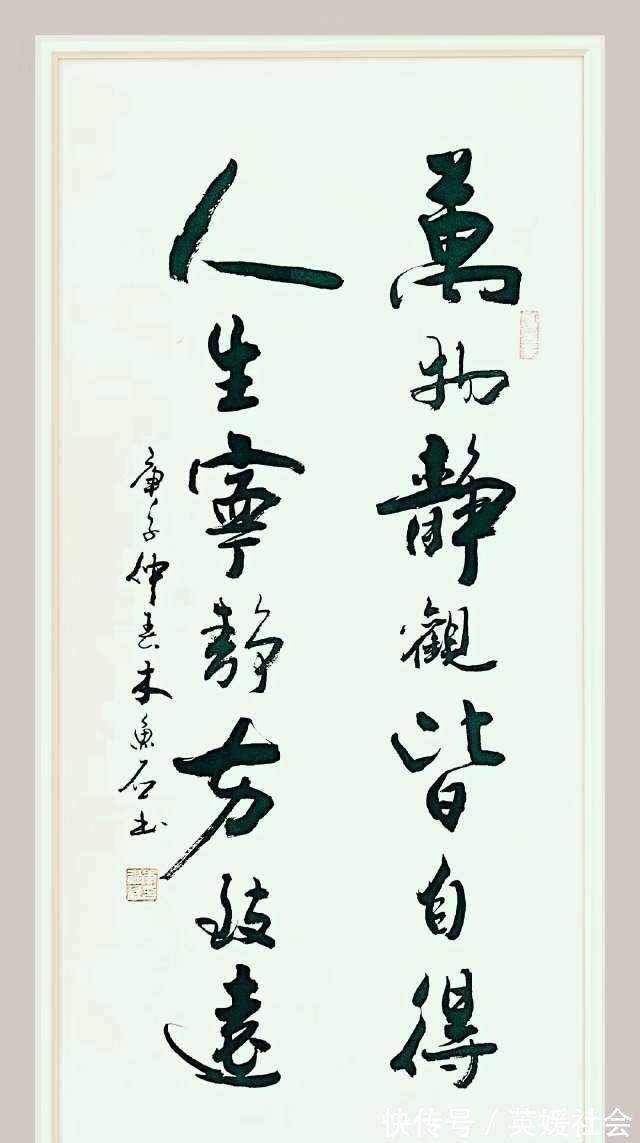 萬物静觀皆自得
人生寧静方致遠
庚子仲春木魚石书
快传号/英媛社会